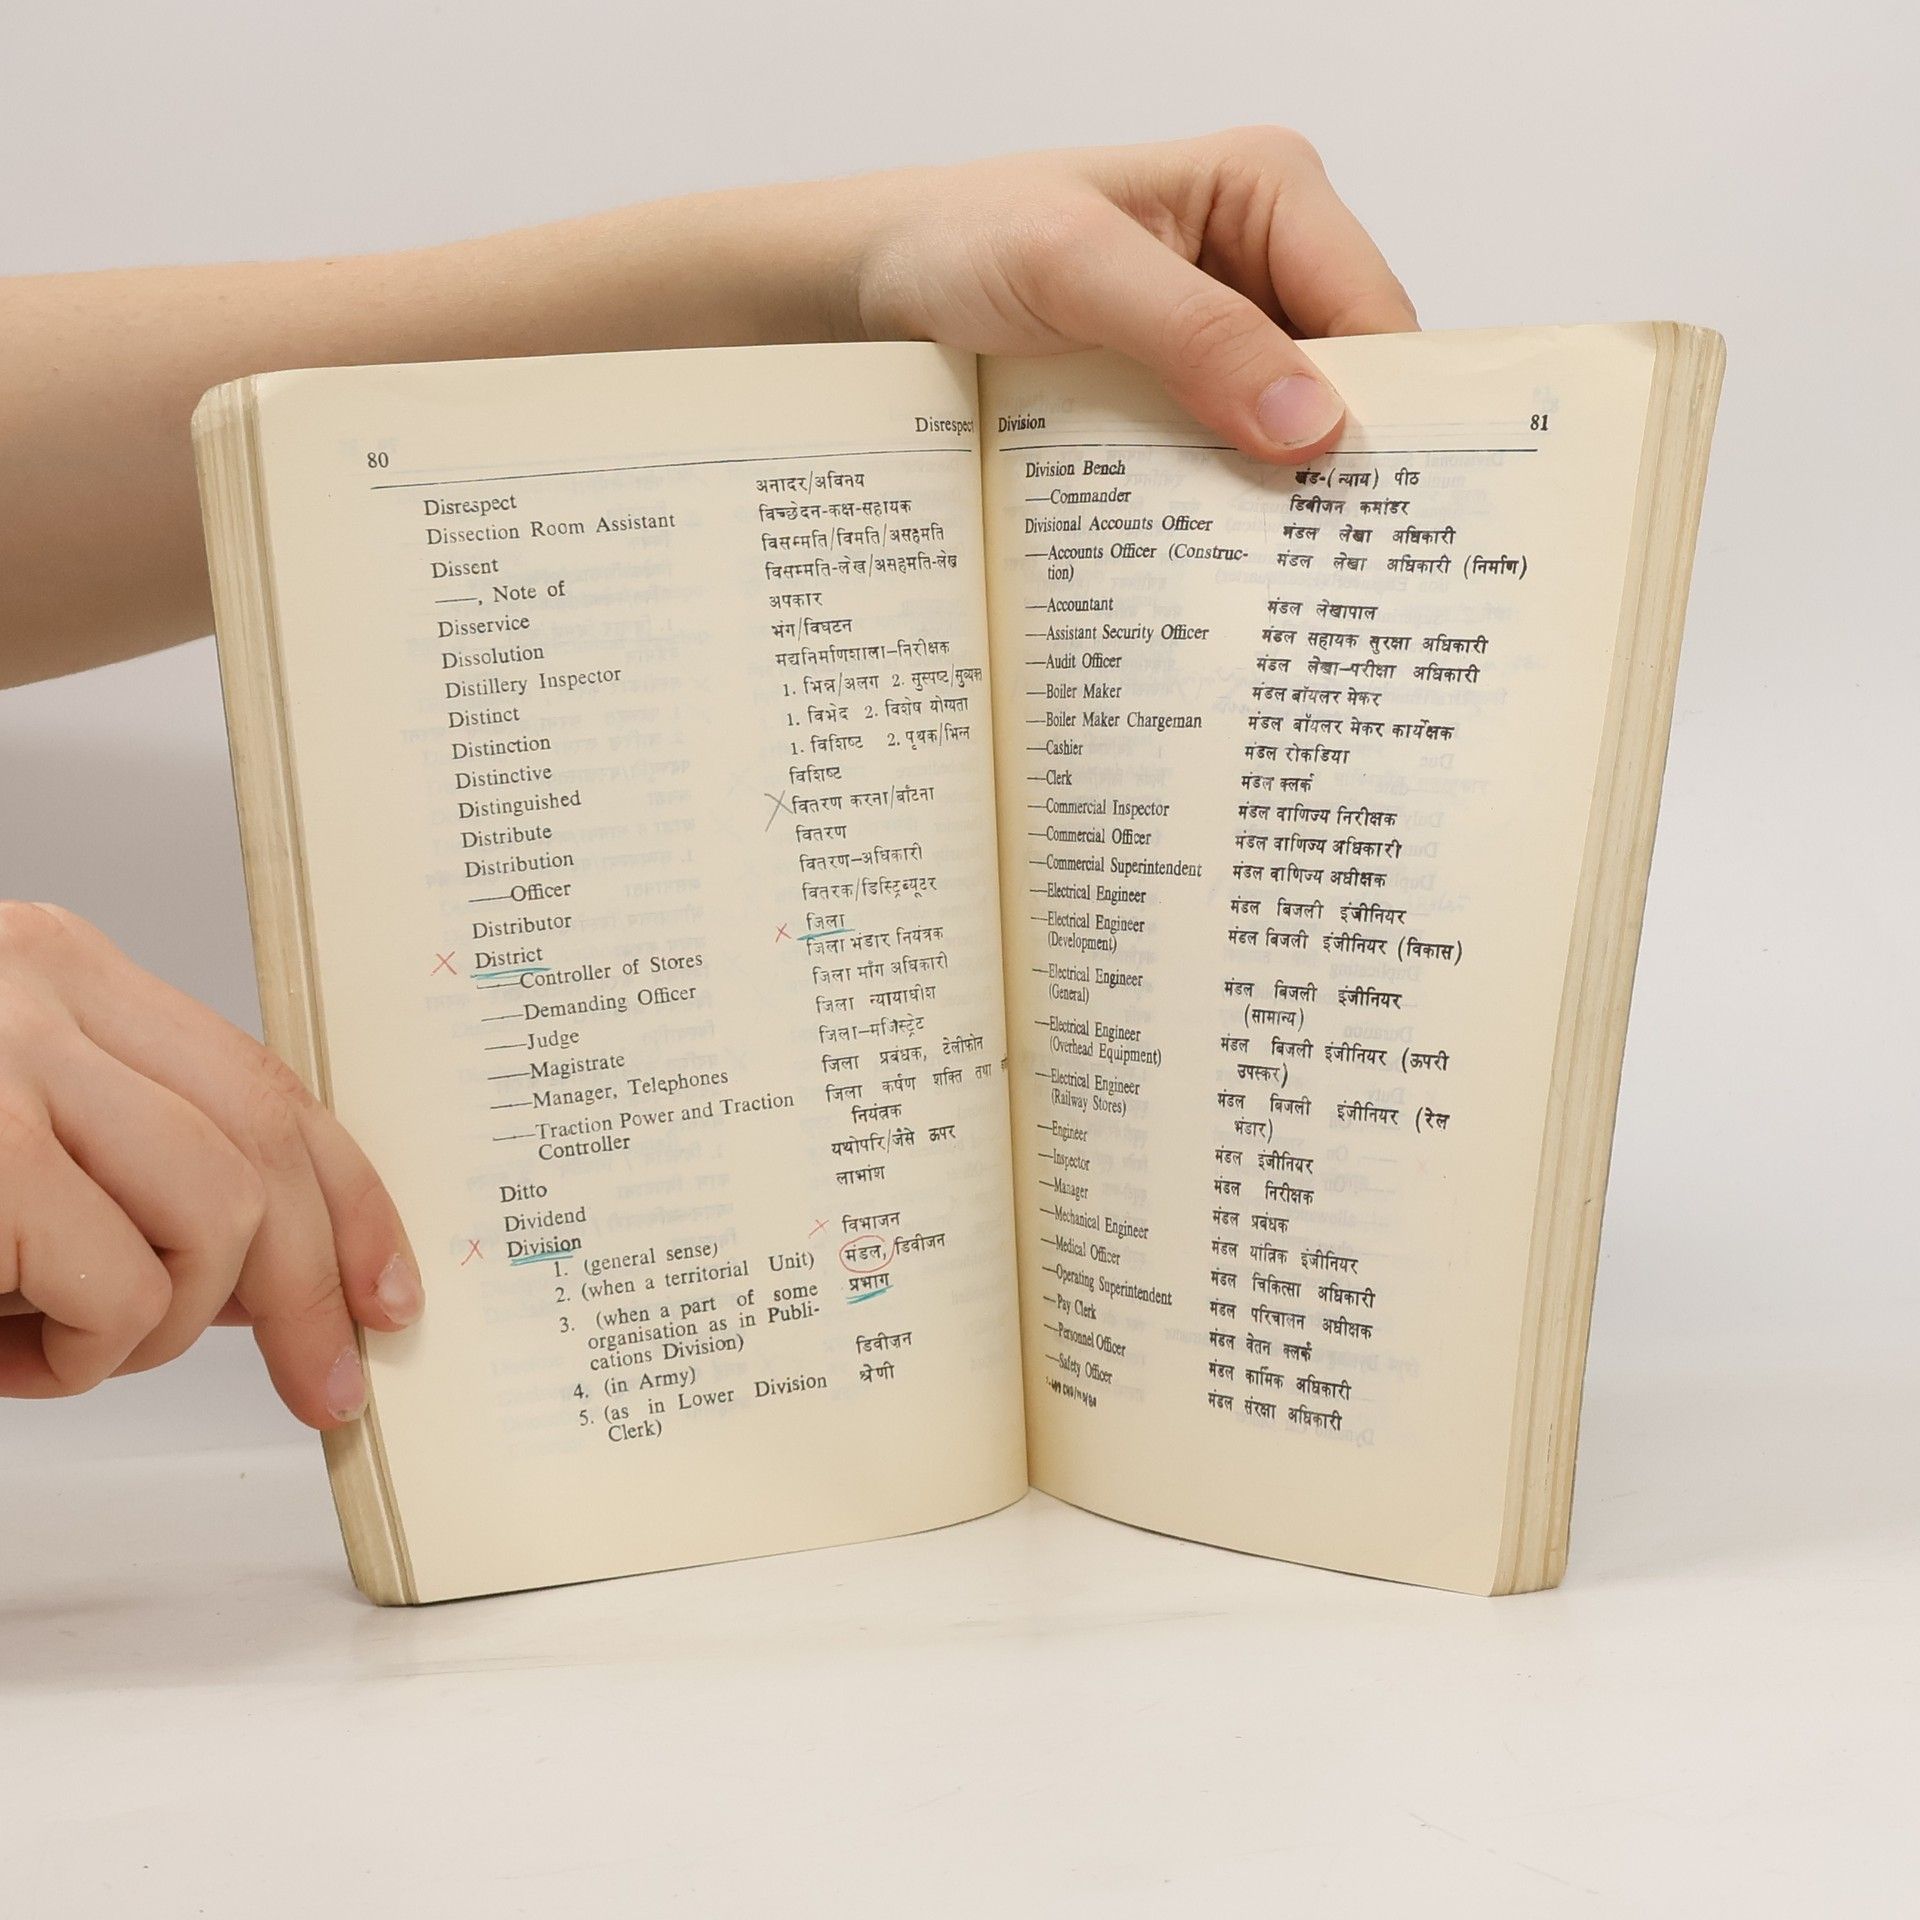 80
Disrespect
Disrespect अनादर/अविनय
Dissection Room Assistant विच्छेदन-कक्ष-सहायक
Dissent विसम्मति/विमति/असहमति
——, Note of विसम्मति-लेख/असहमति-लेख
Disservice अपकार
Dissolution भंग/विघटन
Distillery Inspector मद्यनिर्माणशाला—निरीक्षक
Distinct 1. भिन्न/अलग 2. सुस्पष्ट/सुव्यक्त
Distinction 1. विभेद 2. विशेष योग्यता
Distinctive 1. विशिष्ट 2. पृथक/भिन्न
Distinguished विशिष्ट
Distribute वितरण करना/बाँटना
Distribution वितरण
——Officer वितरण—अधिकारी
Distributor वितरक/डिस्ट्रिब्यूटर
District जिला
——Controller of Stores जिला भंडार नियंत्रक
——Demanding Officer जिला माँग अधिकारी
——Judge जिला न्यायाधीश
——Magistrate जिला—मजिस्ट्रेट
——Manager, Telephones जिला प्रबंधक, टेलीफोन
——Traction Power and Traction जिला कर्षण शक्ति तथा
Controller नियंत्रक
Ditto यथोपरि/जैसे ऊपर
Dividend लाभांश
Division
1. (general sense) विभाजन
2. (when a territorial Unit) मंडल, डिवीजन
3. (when a part of some प्रभाग
organisation as in Publi-
cations Division)
4. (in Army) डिवीज़न
5. (as in Lower Division श्रेणी
Clerk)
Division
81
Division Bench खंड-(न्याय) पीठ
——Commander डिवीजन कमांडर
Divisional Accounts Officer मंडल लेखा अधिकारी
——Accounts Officer (Construc- मंडल लेखा अधिकारी (निर्माण)
tion)
——Accountant मंडल लेखापाल
——Assistant Security Officer मंडल सहायक सुरक्षा अधिकारी
——Audit Officer मंडल लेखा—परीक्षा अधिकारी
——Boiler Maker मंडल बॉयलर मेकर
——Boiler Maker Chargeman मंडल बॉयलर मेकर कार्येक्षक
——Cashier मंडल रोकडिया
——Clerk मंडल क्लर्क
——Commercial Inspector मंडल वाणिज्य निरीक्षक
——Commercial Officer मंडल वाणिज्य अधिकारी
——Commercial Superintendent मंडल वाणिज्य अधीक्षक
——Electrical Engineer मंडल बिजली इंजीनियर
——Electrical Engineer मंडल बिजली इंजीनियर (विकास)
(Development)
——Electrical Engineer मंडल बिजली इंजीनियर
(General) (सामान्य)
——Electrical Engineer मंडल बिजली इंजीनियर (ऊपरी
(Overhead Equipment) उपस्कर)
——Electrical Engineer मंडल बिजली इंजीनियर (रेल
(Railway Stores) भंडार)
——Engineer मंडल इंजीनियर
——Inspector मंडल निरीक्षक
——Manager मंडल प्रबंधक
——Mechanical Engineer मंडल यांत्रिक इंजीनियर
——Medical Officer मंडल चिकित्सा अधिकारी
——Operating Superintendent मंडल परिचालन अधीक्षक
——Pay Clerk मंडल वेतन क्लर्क
——Personnel Officer मंडल कार्मिक अधिकारी
——Safety Officer मंडल संरक्षा अधिकारी